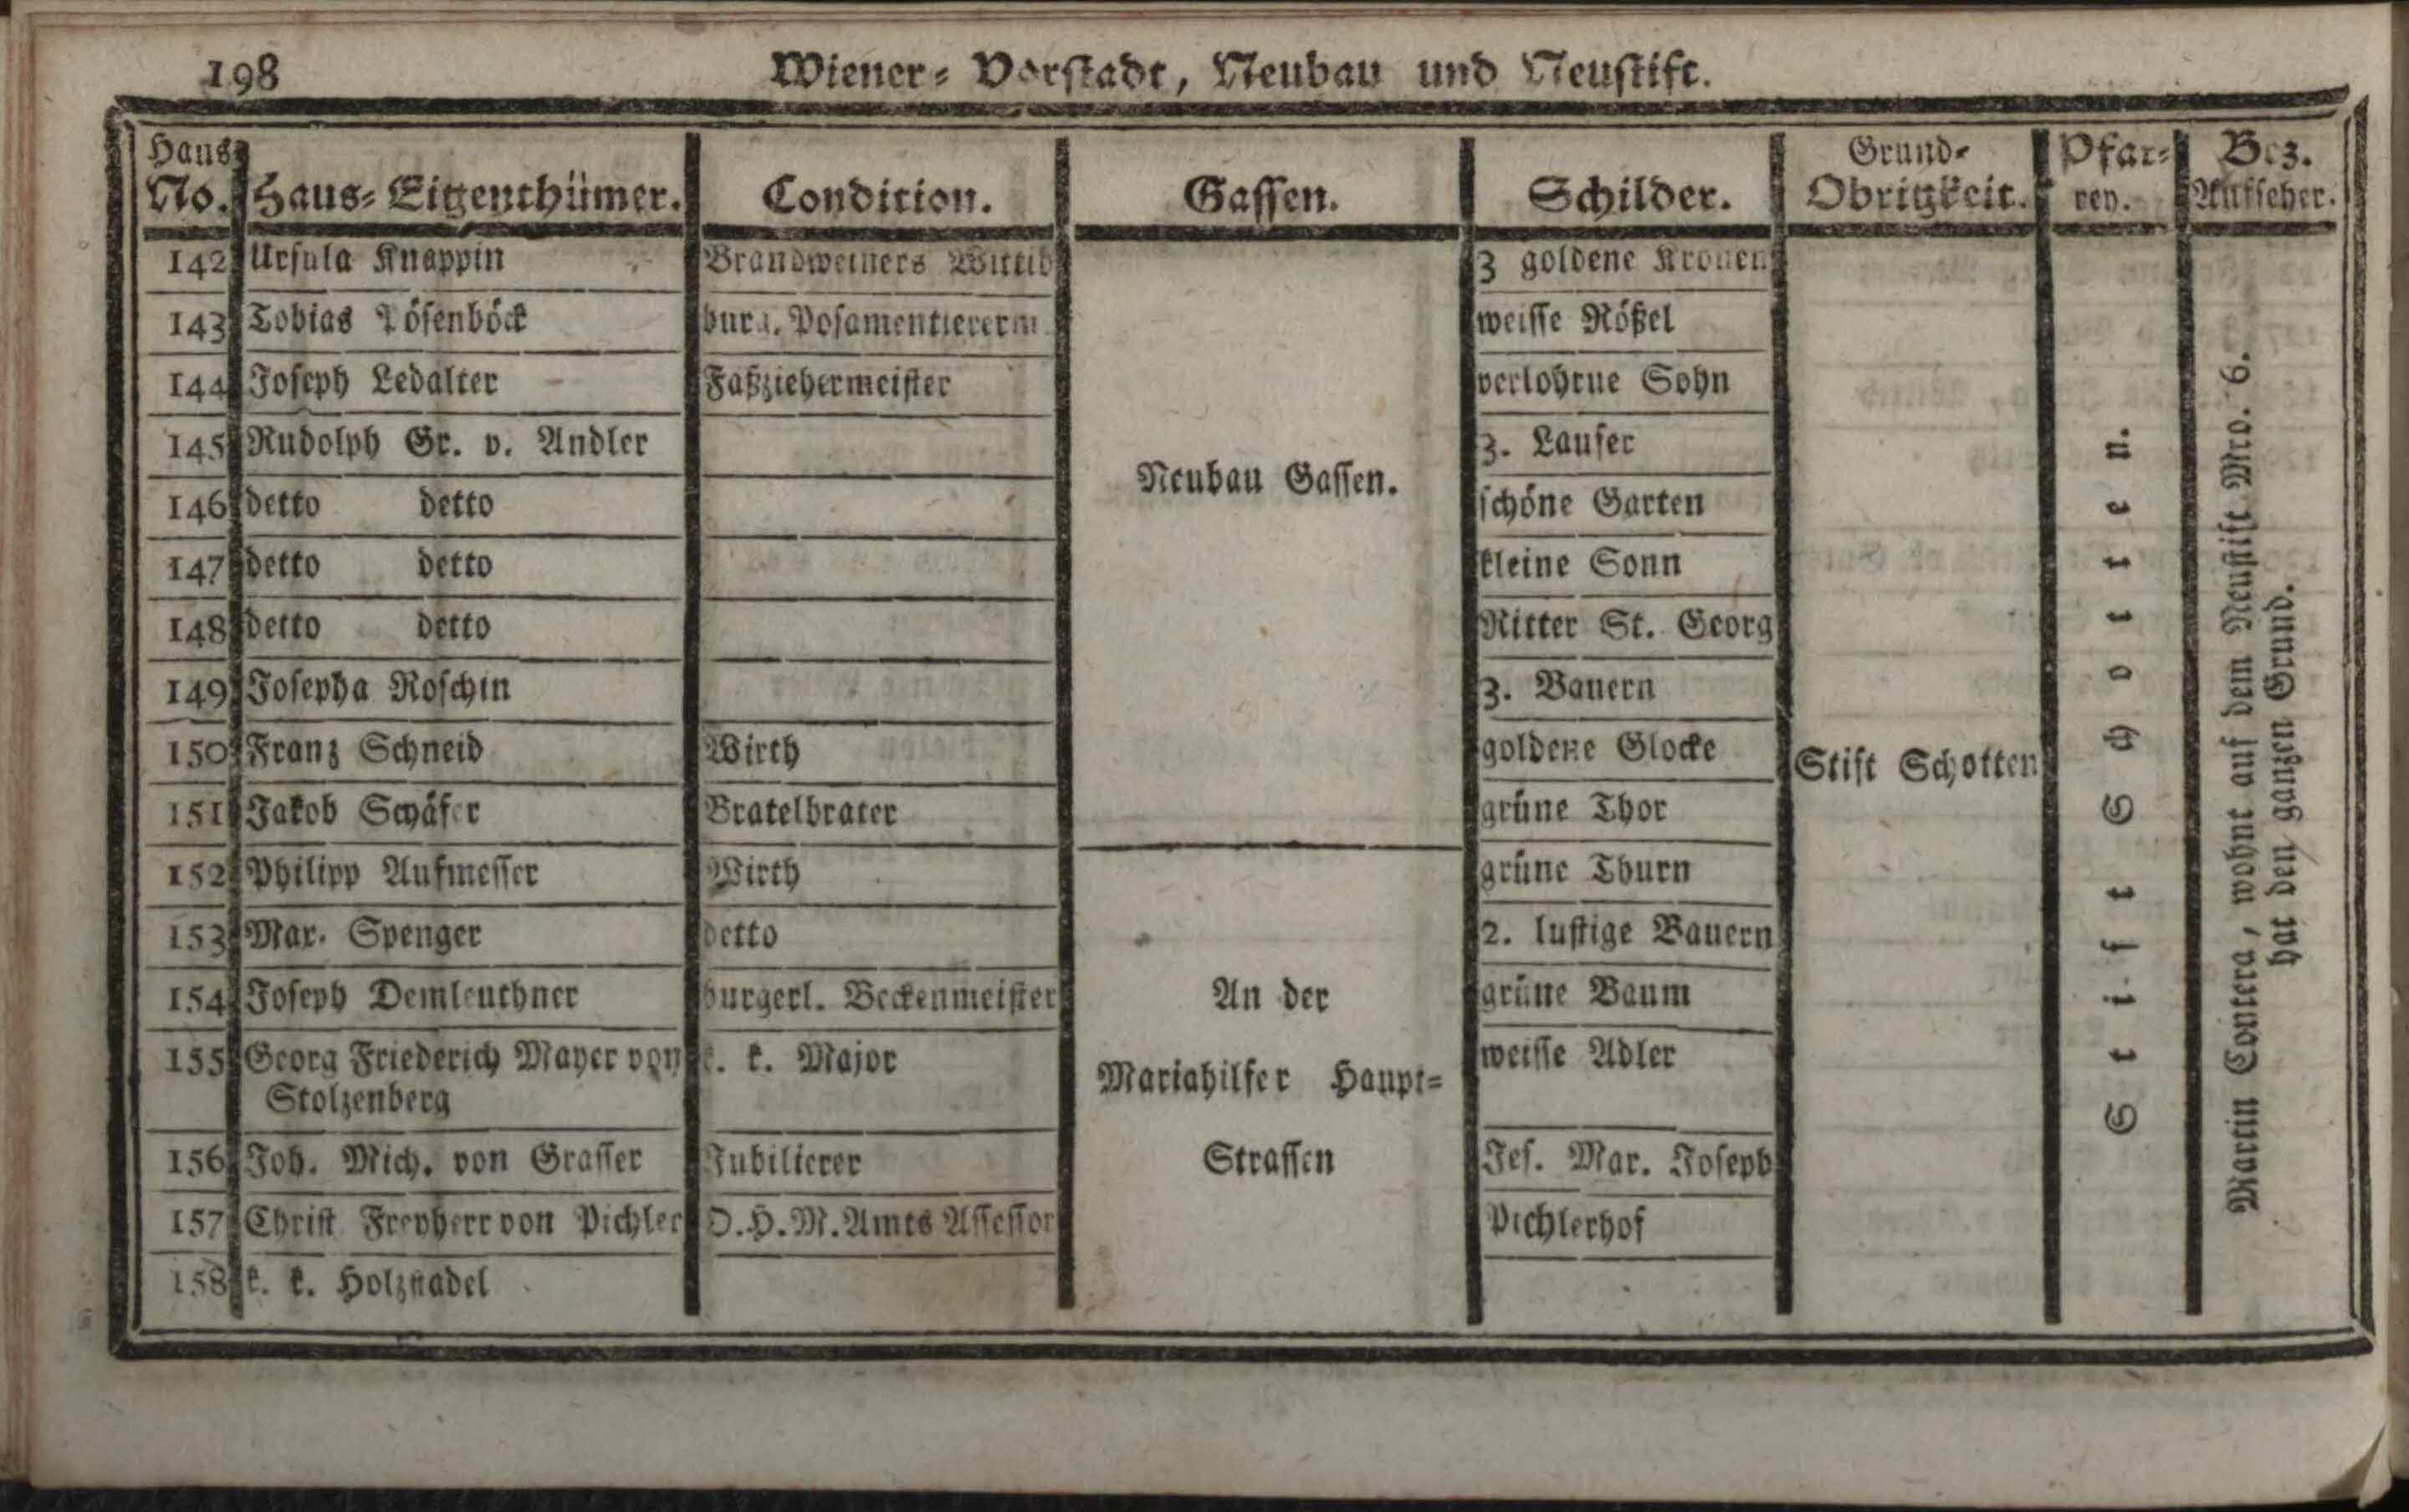 198 Wiener- Vorstadt, Neubau und Neustift.
Haus No. Haus-Eigenthümer. Condition. Gassen. Schilder. Grund-Obrigkeit. Pfar-rey. Bez. Aufseher.
142 Ursula Knappin Brandweiners Wittib 3 goldene Kronen
143 Tobias Pösenböck burg. Posamentiererm weisse Rößel
144 Joseph Ledalter Faßziehermeister verlohrne Sohn
145 Rudolph Gr. v. Andler 3. Laufer
Neubau Gassen.
146 detto detto schöne Garten
147 detto detto kleine Sonn
148 detto detto Ritter St. Georg
149 Josepha Roschin 3. Bauern
150 Franz Schneid Wirth goldene Glocke
Stift Schotten
151 Jakob Schäfer Bratelbrater grüne Thor
152 Philipp Aufmesser Wirth grüne Thurn
153 Mar. Spenger detto 2. lustige Bauern
154 Joseph Demleuthner burgerl. Beckenmeister An der grüne Baum
155 Georg Friederich Mayer von k. k. Major weisse Adler
Stolzenberg
Mariahilfer Haupt-
156 Joh. Mich. von Grasser Jubilierer Strassen Jes. Mar. Joseph
157 Christ Freyherr von Pichler O.H.M. Amts Assessor Pichlerhof
158 k. k. Holzstadel
Stift Schotten.
Martin Contera, wohnt auf dem Neustift Nro. 6.
hat den ganzen Grund.